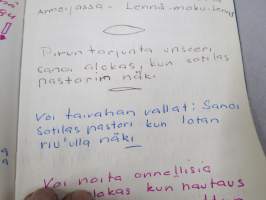 armeijassa - Lennä-moku-lennä
Pirun torjunta unseeri
sanoi alokas, kun sotilas
pastorin näki
Voi taivahan vallat: Sanoi
sotilas pastori kun lotan
riu'ulla näki
Voi noita onnellisia
alokas kun hautaus